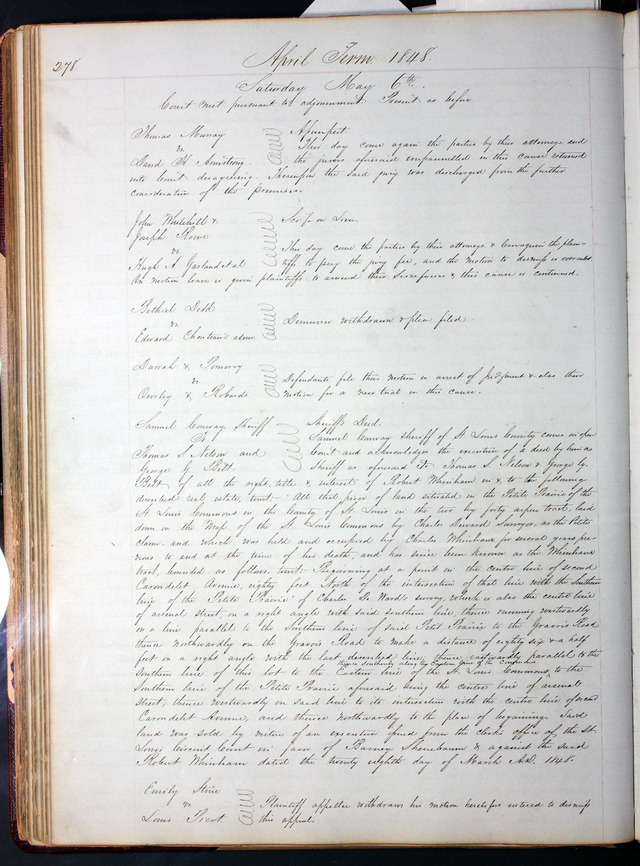 278
April Term 1848.
Saturday May 6th.
Court met pursuant to adjournment. Present as before
Thomas Murray
vs
David H. Armstrong
Assumpsit
This day come again the parties by their attorneys and
the jurors aforesaid empannelled in this cause returned
into Court disagreeing. Thereupon the said jury was discharged from the further
consideration of the premises.
John Whitehill &
Joseph Rowe
vs
Hugh A Garland et al
Sci fa on Lien.
This day come the parties by their attorneys & the plain-
tiffs to pay the jury fee, and the motion to dismiss is overruled.
On motion leave is given plaintiffs to amend their Scire facias & this cause is continued.
Bethiel Dodd
vs
Edward Chouteau's admr.
Demurrer withdrawn & plea filed
Darrah & Pomeroy
vs
Owsley & Robards
Defendants file their motion in arrest of Judgment & also their
motion for a new trial in this cause.
Samuel Conway Sheriff
To
Thomas S. Nelson and
George G. Pitt.
Sheriff's Deed.
Samuel Conway sheriff of St. Louis County comes in open
Court and acknowledges the execution of a deed by him as
Sheriff as aforesaid to Thomas S. Nelson & George G.
Pitt, of all the right, title & interest of Robert Whinham in & to the following
described real estate, towit: All that piece of land situated in the Petite Prairie of the
St Louis Commons in the County of St. Louis in the two by forty arpen tract, laid
down on the Map of the St. Louis Commons by Charles Deward Surveyor, as the Petite
claim and which was held and occupied by Charles Whinham for several years pre-
vious to and at the time of his death, and has since been known as the Whinham
tract, bounded as follows, towit: Beginning at a point on the centre line of second
Carondelet Avenue, eighty feet North of the intersection of that line with the Southern
line of the "Petite Prairie" of Charles D. Ward's survey, which is also the centre line
of arsenal street, on a right angle with said southern line, thence running westwardly
on a line parallel to the Southern line of said Petit Prairie to the Gravois Road
thence northwardly on the Gravois Road to make a distance of eighty six & a half
feet on a right angle with the last described line, thence eastwardly parallel to the
Southern line of this lot to the Eastern line of the St. Louis Commons, thence southwardly along the Eastern line of the Commons to the
Southern line of the Petite Prairie aforesaid being the centre line of arsenal
street, thence westwardly on said line to its intersection with the centre line of second
Carondelet Avenue, and thence northwardly to the place of beginning. Said
land was sold by virtue of an execution issued from the clerks office of the St.
Louis Circuit Court in favor of Barney Shenebaum & against the said
Robert Whinham dated the twenty eighth day of March A.D. 1848.
Emily Stine
vs
Louis Picot
Plaintiff appellee withdraws his motion heretofore entered to dismiss
this appeal.